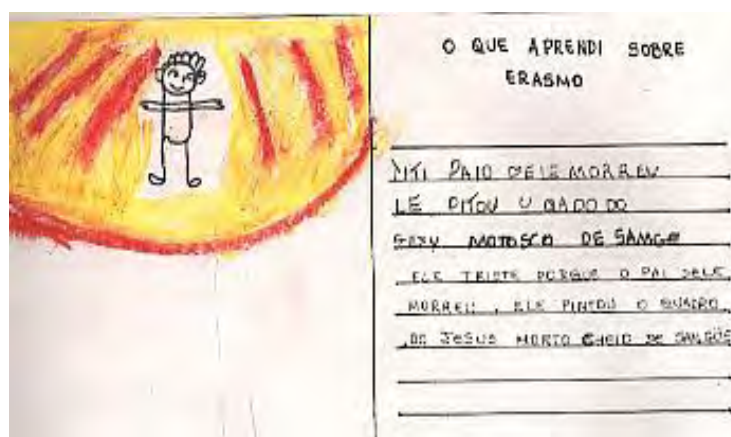 O QUE APRENDI SOBRE
ERASMO
PAIO DELE MORREU
LE PITOU U
DE SAMGE
ELE TRISTE PORQUE O PAI DELE
MORREU, ELE PINTOU O QUADRO
DO JESUS MORTO CHEIO DE SANGUE